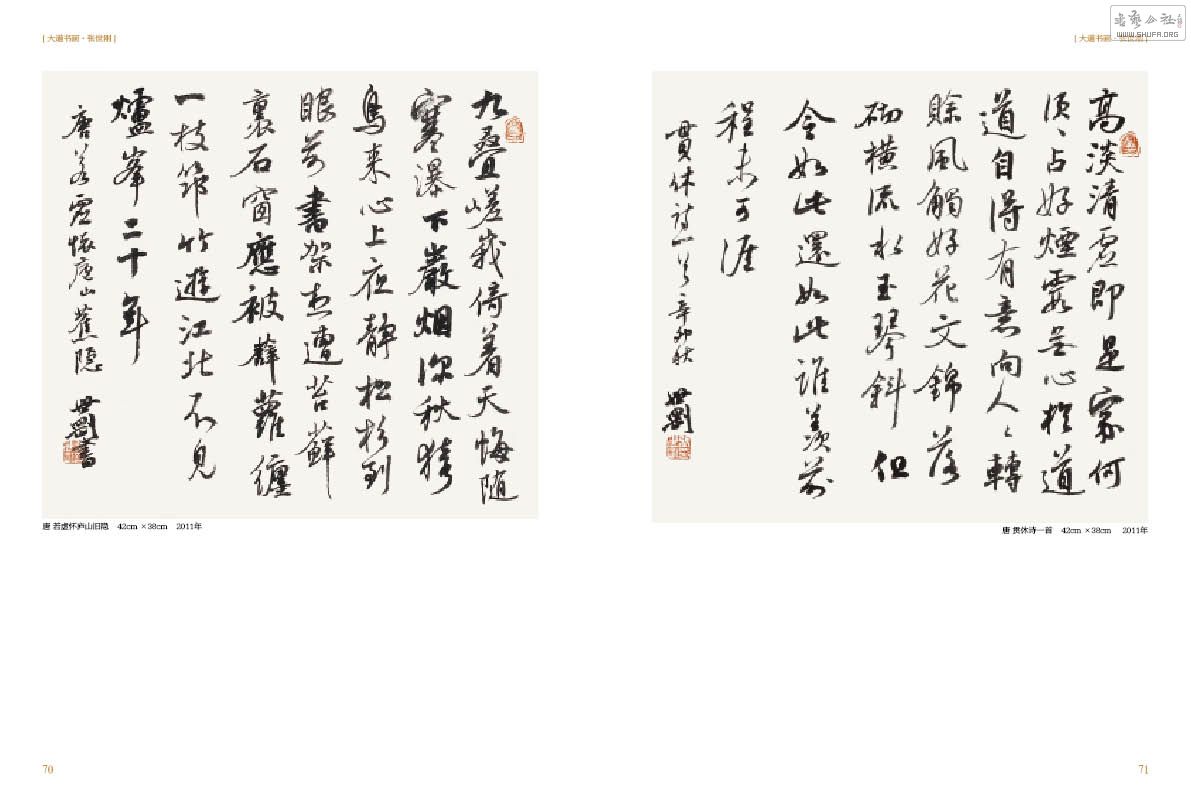 [ 大道书画·张世刚 ]
九叠嵯峨倚着天悔随
寒瀑下巖烟深秋猿
鸟来心上夜静松杉到
眼前書架想遭苔蘚
裹石窗應被薜蘿纏
一枝筇竹遊江北不見
爐峯二十年
唐若虚懷庐山舊隐 世剛書
唐 若虚怀庐山旧隐 42cm ×38cm 2011年
70
[ 大道书画·张世刚 ]
WWW.SHUFA.ORG
高淡清虚即是家何
须〻占好煙霞无心於道
道自得有意向人〻轉
賒風觸好花文錦落
砌橫流水玉琴斜但
令如此還如此誰羡前
程未可涯
贯休诗一首辛卯秋 世剛
唐 贯休诗一首 42cm ×38cm 2011年
71